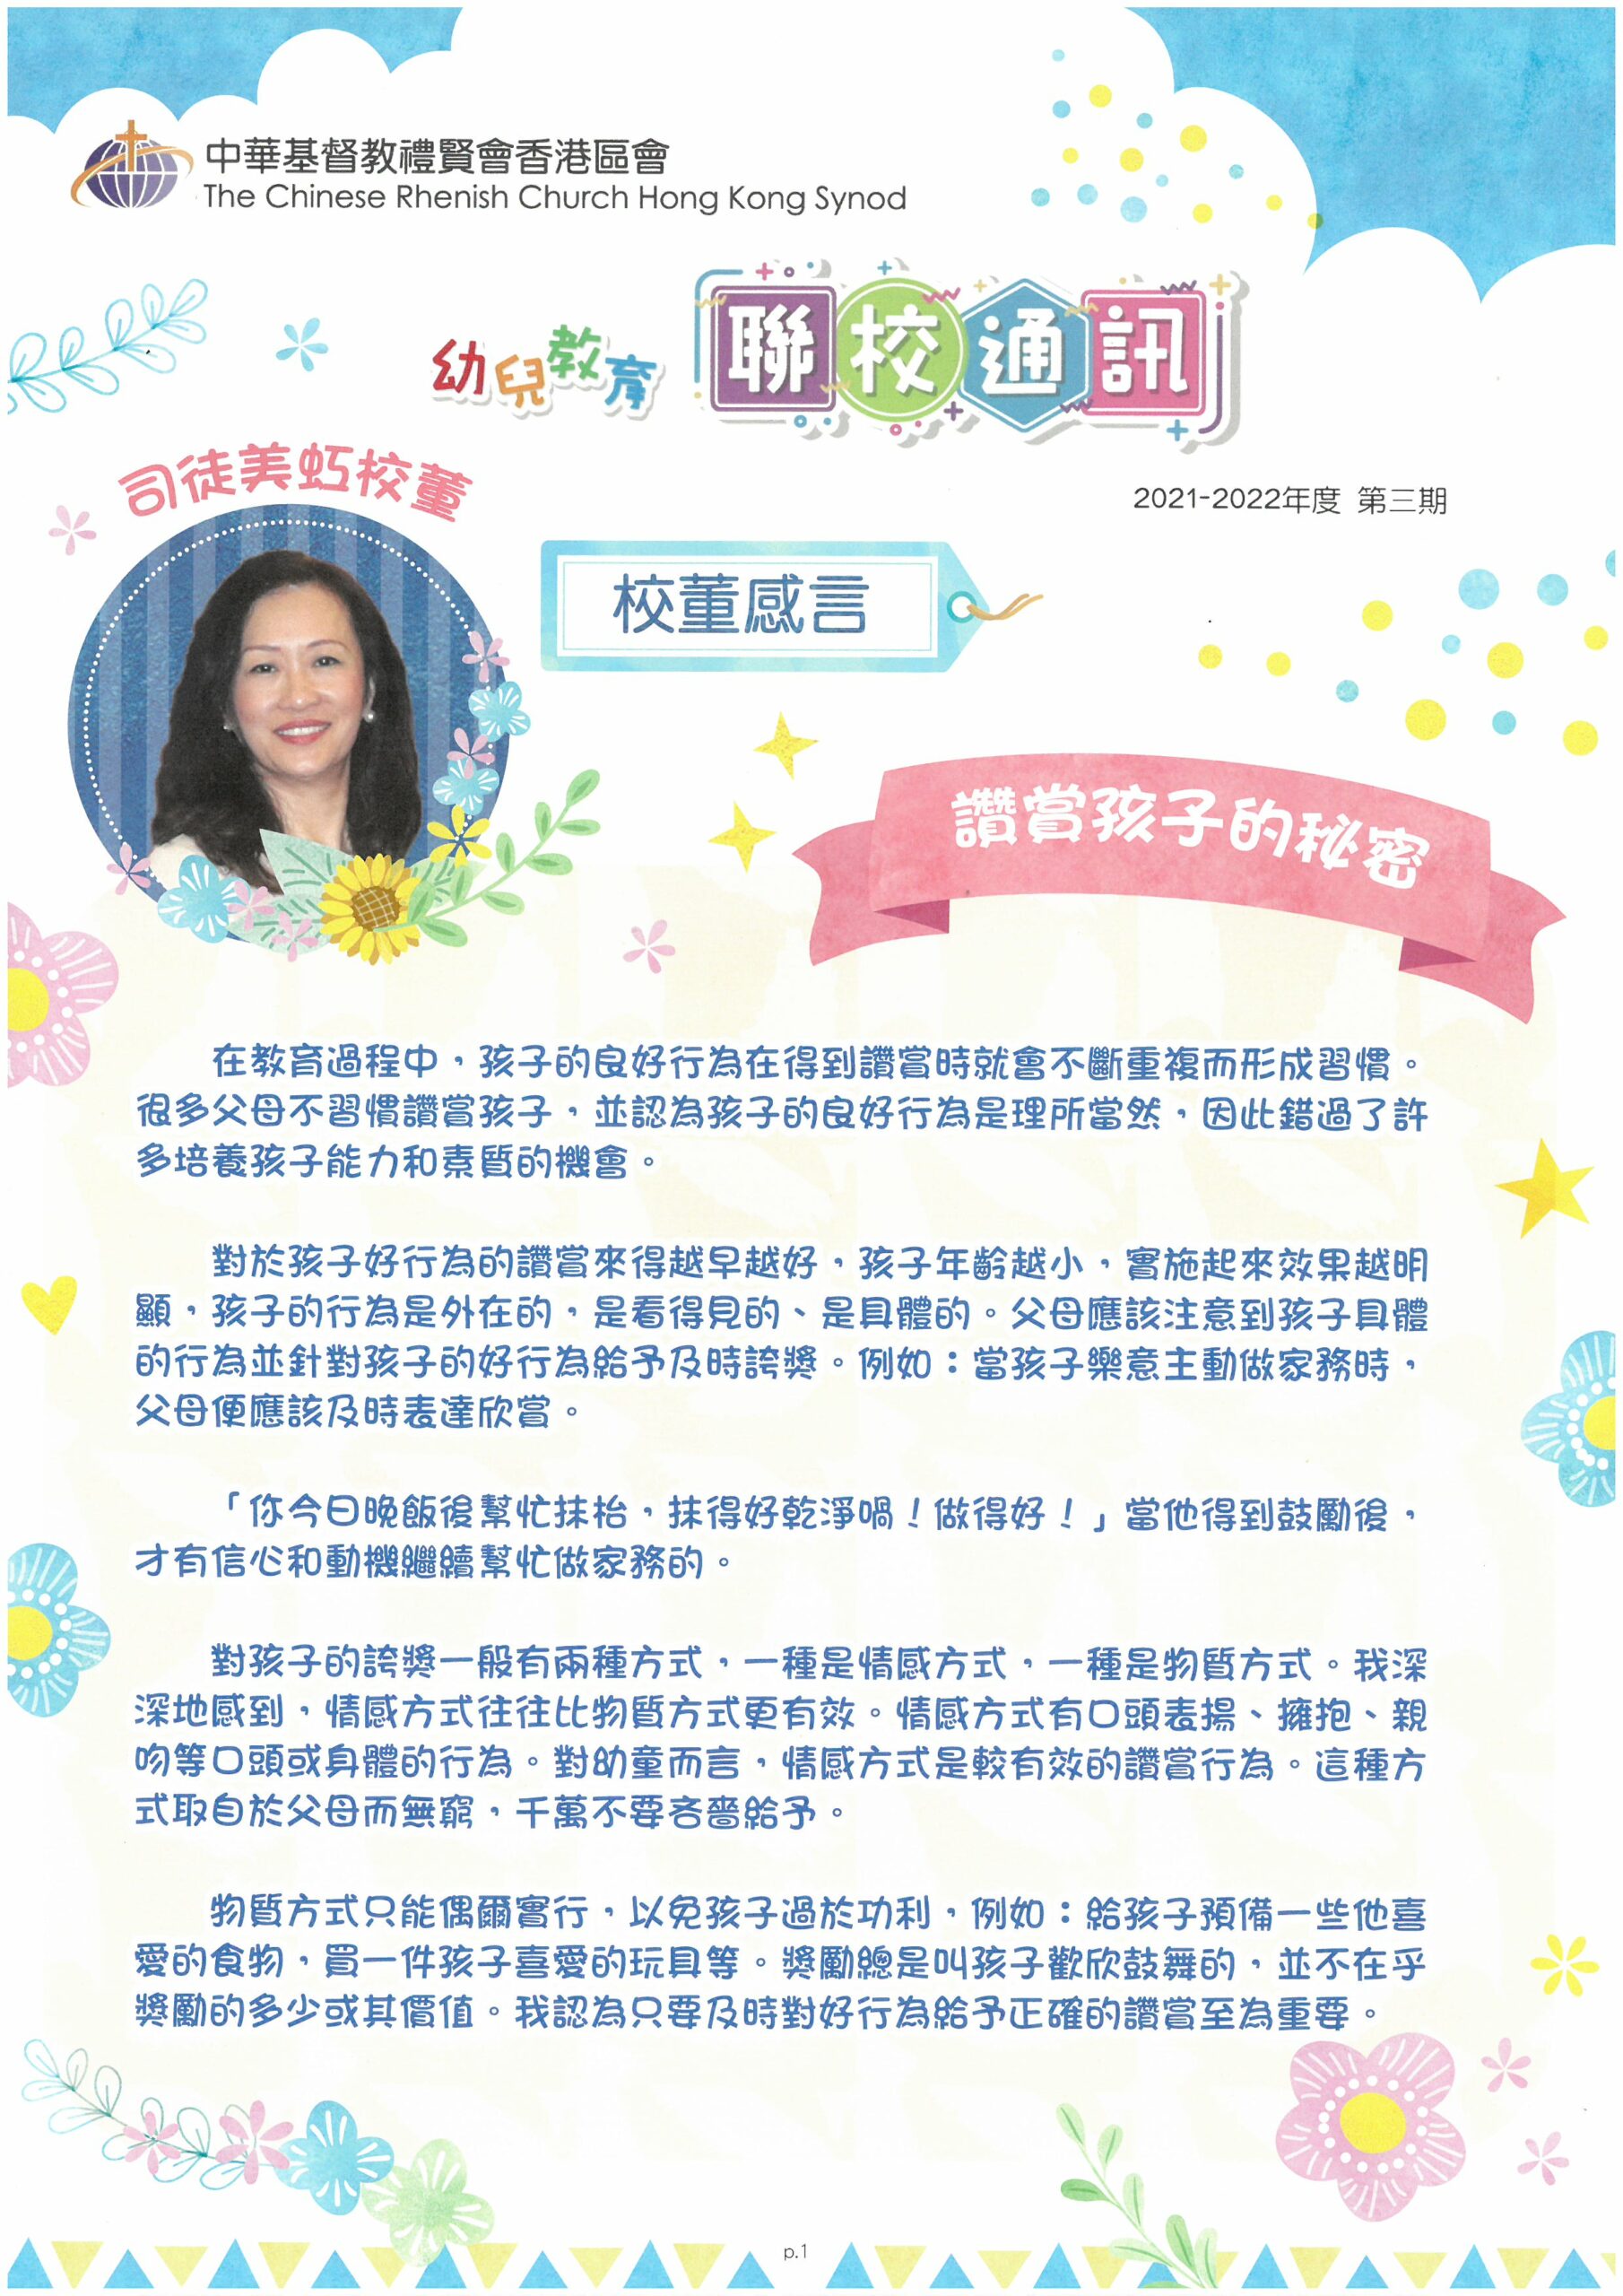 中華基督教禮賢會香港區會
The Chinese Rhenish Church Hong Kong Synod
幼兒教育
聯校通訊
司徒美虹校董
2021-2022年度 第三期
校董感言
讚賞孩子的秘密
在教育過程中，孩子的良好行為在得到讚賞時就會不斷重複而形成習慣。
很多父母不習慣讚賞孩子，並認為孩子的良好行為是理所當然，因此錯過了許
多培養孩子能力和素質的機會。
對於孩子好行為的讚賞來得越早越好，孩子年齡越小，實施起來效果越明
顯，孩子的行為是外在的，是看得見的、是具體的。父母應該注意到孩子具體
的行為並針對孩子的好行為給予及時誇獎。例如：當孩子樂意主動做家務時，
父母便應該及時表達欣賞。
「你今日晚飯後幫忙抹枱，抹得好乾淨喎！做得好！」當他得到鼓勵後，
才有信心和動機繼續幫忙做家務的。
對孩子的誇獎一般有兩種方式，一種是情感方式，一種是物質方式。我深
深地感到，情感方式往往比物質方式更有效。情感方式有口頭表揚、擁抱、親
吻等口頭或身體的行為。對幼童而言，情感方式是較有效的讚賞行為。這種方
式取自於父母而無窮，千萬不要吝嗇給予。
物質方式只能偶爾實行，以免孩子過於功利，例如：給孩子預備一些他喜
愛的食物，買一件孩子喜愛的玩具等。獎勵總是叫孩子歡欣鼓舞的，並不在乎
獎勵的多少或其價值。我認為只要及時對好行為給予正確的讚賞至為重要。
p.1